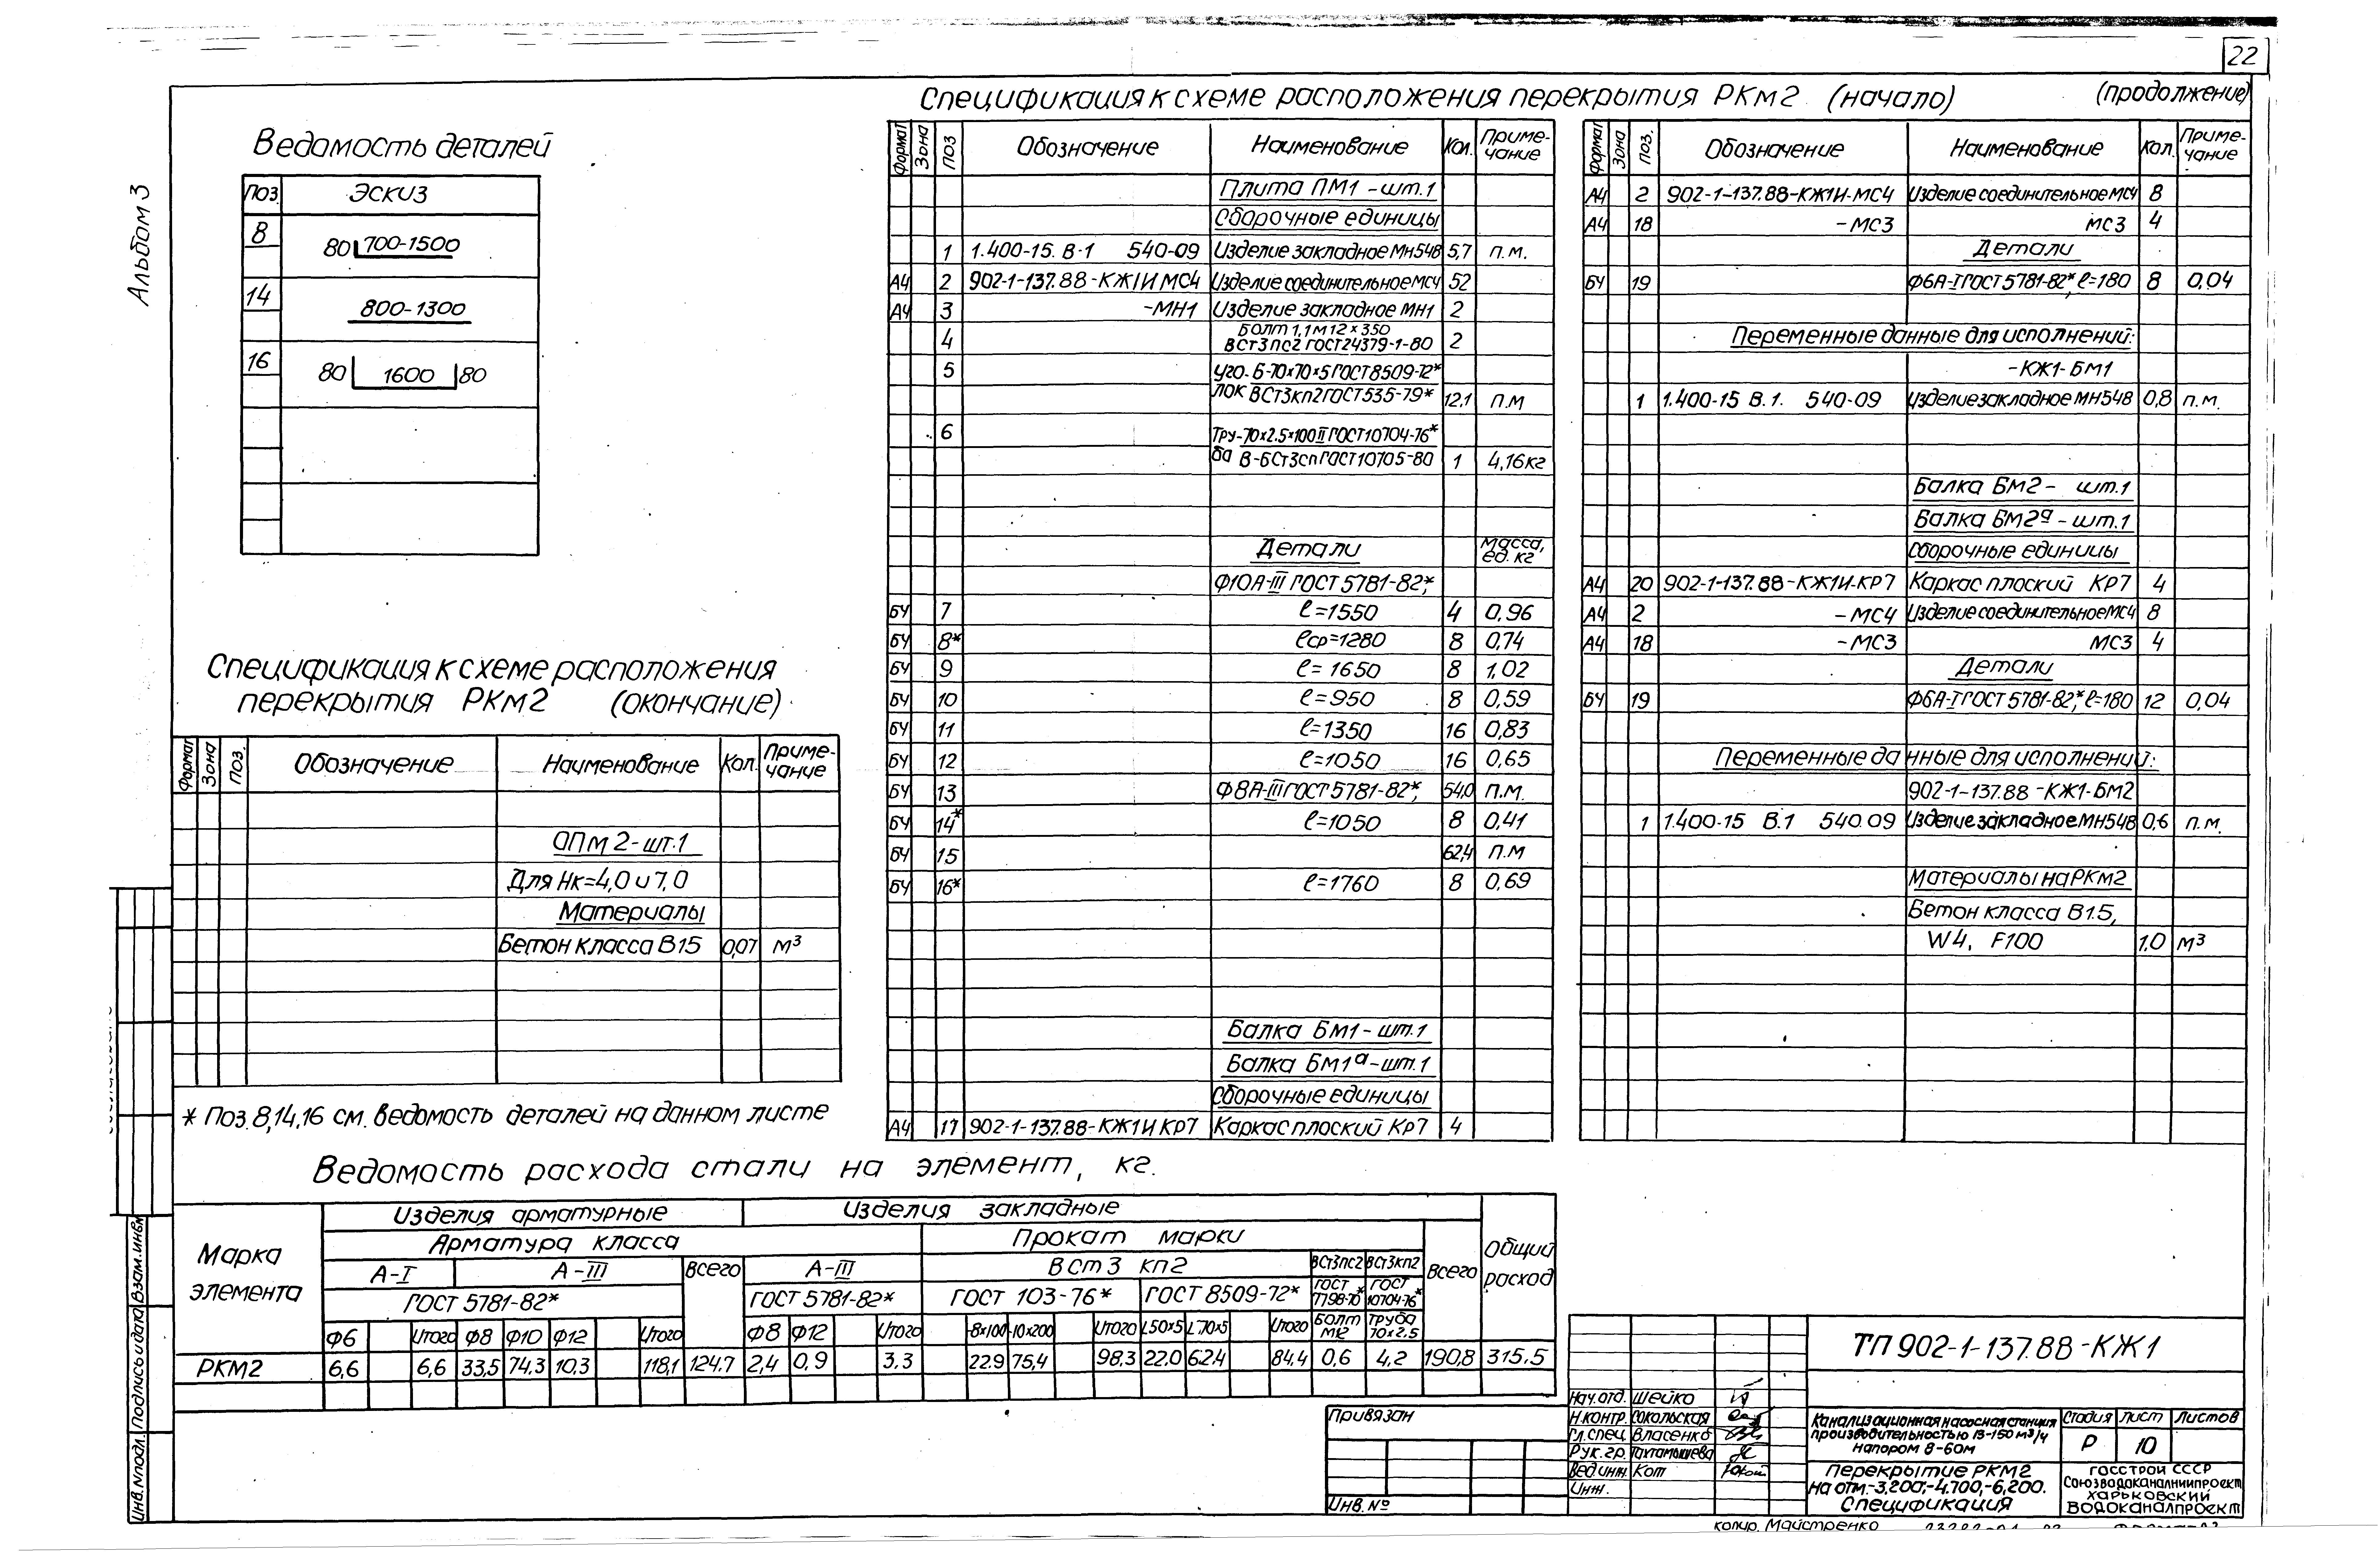 22
Альбом 3
Ведомость деталей
Поз. Эскиз
8 80 700-1500
14 800-1300
16 80 1600 80
Спецификация к схеме расположения
перекрытия РКм2 (окончание)
Формат Зона Поз. Обозначение Наименование Кол. Приме-
чание
ОПм 2-шт.1
Для Нк=4,0 и 7,0
Материалы
Бетон класса В15 0,07 м³
* Поз. 8,14,16 см. ведомость деталей на данном листе
Спецификация к схеме расположения перекрытия РКм2 (начало)
Формат Зона Поз Обозначение Наименование Кол. Приме-
чание
Плита ПМ1 -шт.1
Сборочные единицы
1 1.400-15. В-1 540-09 Изделие закладное Мн548 5,7 п.м.
А4 2 902-1-137.88-КЖ1И МС4 Изделие соединительное МС4 52
А4 3 -МН1 Изделие закладное МН1 2
Болт 1,1 М12×350
4 ВСт3пс2 ГОСТ24379-1-80 2
5 Уго- Б-70×70×5 ГОСТ 8509-72*
лок ВСт3кп2 ГОСТ 535-79* 12,1 п.м
6 Тру-70×2.5×100 II ГОСТ10704-76*
ба В-БСт3сп ГОСТ10705-80 1 4,16кг
Детали Масса,
ед. кг
Ф10А-III ГОСТ 5781-82*,
БЧ 7 ℓ=1550 4 0,96
БЧ 8* ℓср=1280 8 0,74
БЧ 9 ℓ=1650 8 1,02
БЧ 10 ℓ=950 8 0,59
БЧ 11 ℓ=1350 16 0,83
БЧ 12 ℓ=1050 16 0,65
БЧ 13 Ф8А-III ГОСТ 5781-82*, 54,0 п.м.
БЧ 14* ℓ=1050 8 0,41
БЧ 15 62,4 п.м
БЧ 16* ℓ=1760 8 0,69
Балка Бм1- шт.1
Балка Бм1а-шт.1
Сборочные единицы
А4 17 902-1-137.88-КЖ1И КР7 Каркас плоский Кр7 4
(продолжение)
Формат Зона Поз. Обозначение Наименование Кол. Приме-
чание
А4 2 902-1-137.88-КЖ1И-МС4 Изделие соединительное МС4 8
А4 18 -МС3 МС3 4
Детали
БЧ 19 Ф6А-I ГОСТ 5781-82*, ℓ=180 8 0,04
Переменные данные для исполнений:
-КЖ1-БМ1
1 1.400-15 В.1. 540-09 Изделие закладное МН548 0,8 п.м.
Балка Бм2- шт.1
Балка Бм2а-шт.1
Сборочные единицы
А4 20 902-1-137.88-КЖ1И-КР7 Каркас плоский КР7 4
А4 2 -МС4 Изделие соединительное МС4 8
А4 18 -МС3 МС3 4
Детали
БЧ 19 Ф6А-I ГОСТ 5781-82*, ℓ=180 12 0,04
Переменные данные для исполнений:
902-1-137.88-КЖ1-БМ2
1 1.400-15 В.1 540.09 Изделие закладное МН548 0,6 п.м.
Материалы на РКм2
Бетон класса В15,
W4, F100 1,0 м³
Ведомость расхода стали на элемент, кг.
Марка элемента Изделия арматурные Изделия закладные Общий расход
Арматура класса Прокат марки
А-I А-III Всего А-III ВСт3 кп2 ВСт3пс2 ВСт3кп2 Всего
ГОСТ 5781-82* ГОСТ 5781-82* ГОСТ 103-76* ГОСТ 8509-72* ГОСТ 7798-70* ГОСТ 10704-76*
Ф6 Итого Ф8 Ф10 Ф12 Итого Ф8 Ф12 Итого -8×100 -10×200 Итого L50×5 L70×5 Итого Болт М12 Труба 70×2.5
РКМ2 6,6 6,6 33,5 74,3 10,3 118,1 124.7 2,4 0,9 3,3 22.9 75,4 98,3 22.0 62.4 84,4 0,6 4,2 190,8 315.5
Привязан
Инв. №
ТП 902-1-137.88-КЖ1
Нач.отд. Шейко
Н.контр. Сокольская
Гл.спец. Власенко
Рук.гр. Тахтамышева
Вед.инж. Кот
Инж.
Канализационная насосная станция
производительностью 13-150 м³/ч
напором 8-60м
Стадия Лист Листов
Р 10
Перекрытие РКМ2
на отм.-3.200;-4.700;-6,200.
Спецификация
Госстрой СССР
Союзводоканалниипроект
Харьковский
Водоканалпроект
Копир. Майстренко
Инв.№подл. Подпись и дата Взам.инв.№